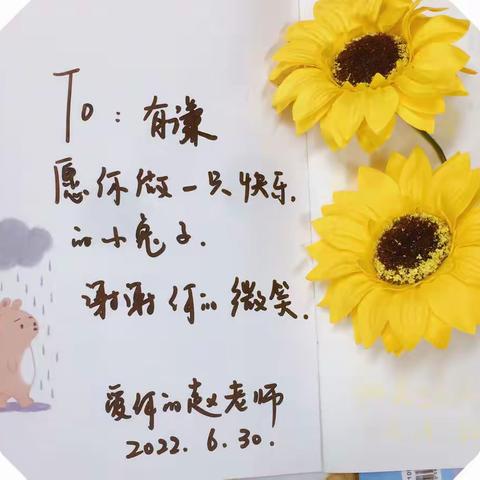 To：有谦
愿你做一只快乐.
的小兔子.
谢谢你的微笑.
爱你的赵老师
2022. 6. 30.